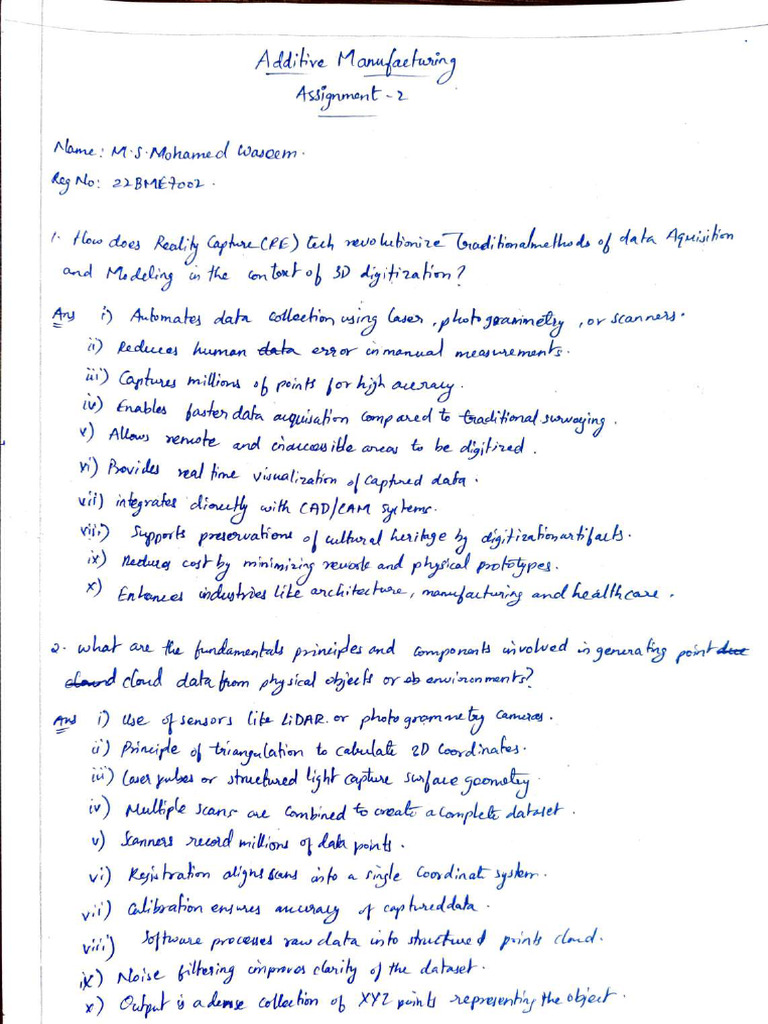 Additive Manufacturing
Assignment - 2
Name: M.S.Mohamed Waseem.
Reg No: 22BME7002.
1. How does Reality Capture(RE) tech revolutionize Traditional methods of data Aquisition
and Modeling in the context of 3D digitization?
Ans i) Automates data collection using laser, photogrammetry, or scanners.
ii) Reduces human data error in manual measurements.
iii) Captures millions of points for high accuracy.
iv) Enables faster data acquisation compared to traditional surveying.
v) Allows remote and inaccessible areas to be digitized.
vi) Provides real time visualization of captured data.
vii) integrates directly with CAD/CAM systems.
viii) Supports preservations of cultural heritage by digitization artifacts.
ix) Reduces cost by minimizing rework and physical prototypes.
x) Enhances industries like architecture, manufacturing and healthcare.
2. What are the fundamentals principles and components involved in generating point
cloud cloud data from physical objects or environments?
Ans i) Use of sensors like LiDAR or photogrammetry cameras.
ii) Principle of triangulation to calculate 2D coordinates.
iii) Laser pulses or structured light capture surface geometry.
iv) Multiple scans are combined to create a complete dataset.
v) Scanners record millions of data points.
vi) Registration aligns scans into a single coordinate system.
vii) Calibration ensures accuracy of captured data.
viii) Software processes raw data into structured points cloud.
ix) Noise filtering improves clarity of the dataset.
x) Output is a dense collection of XYZ points representing the object.